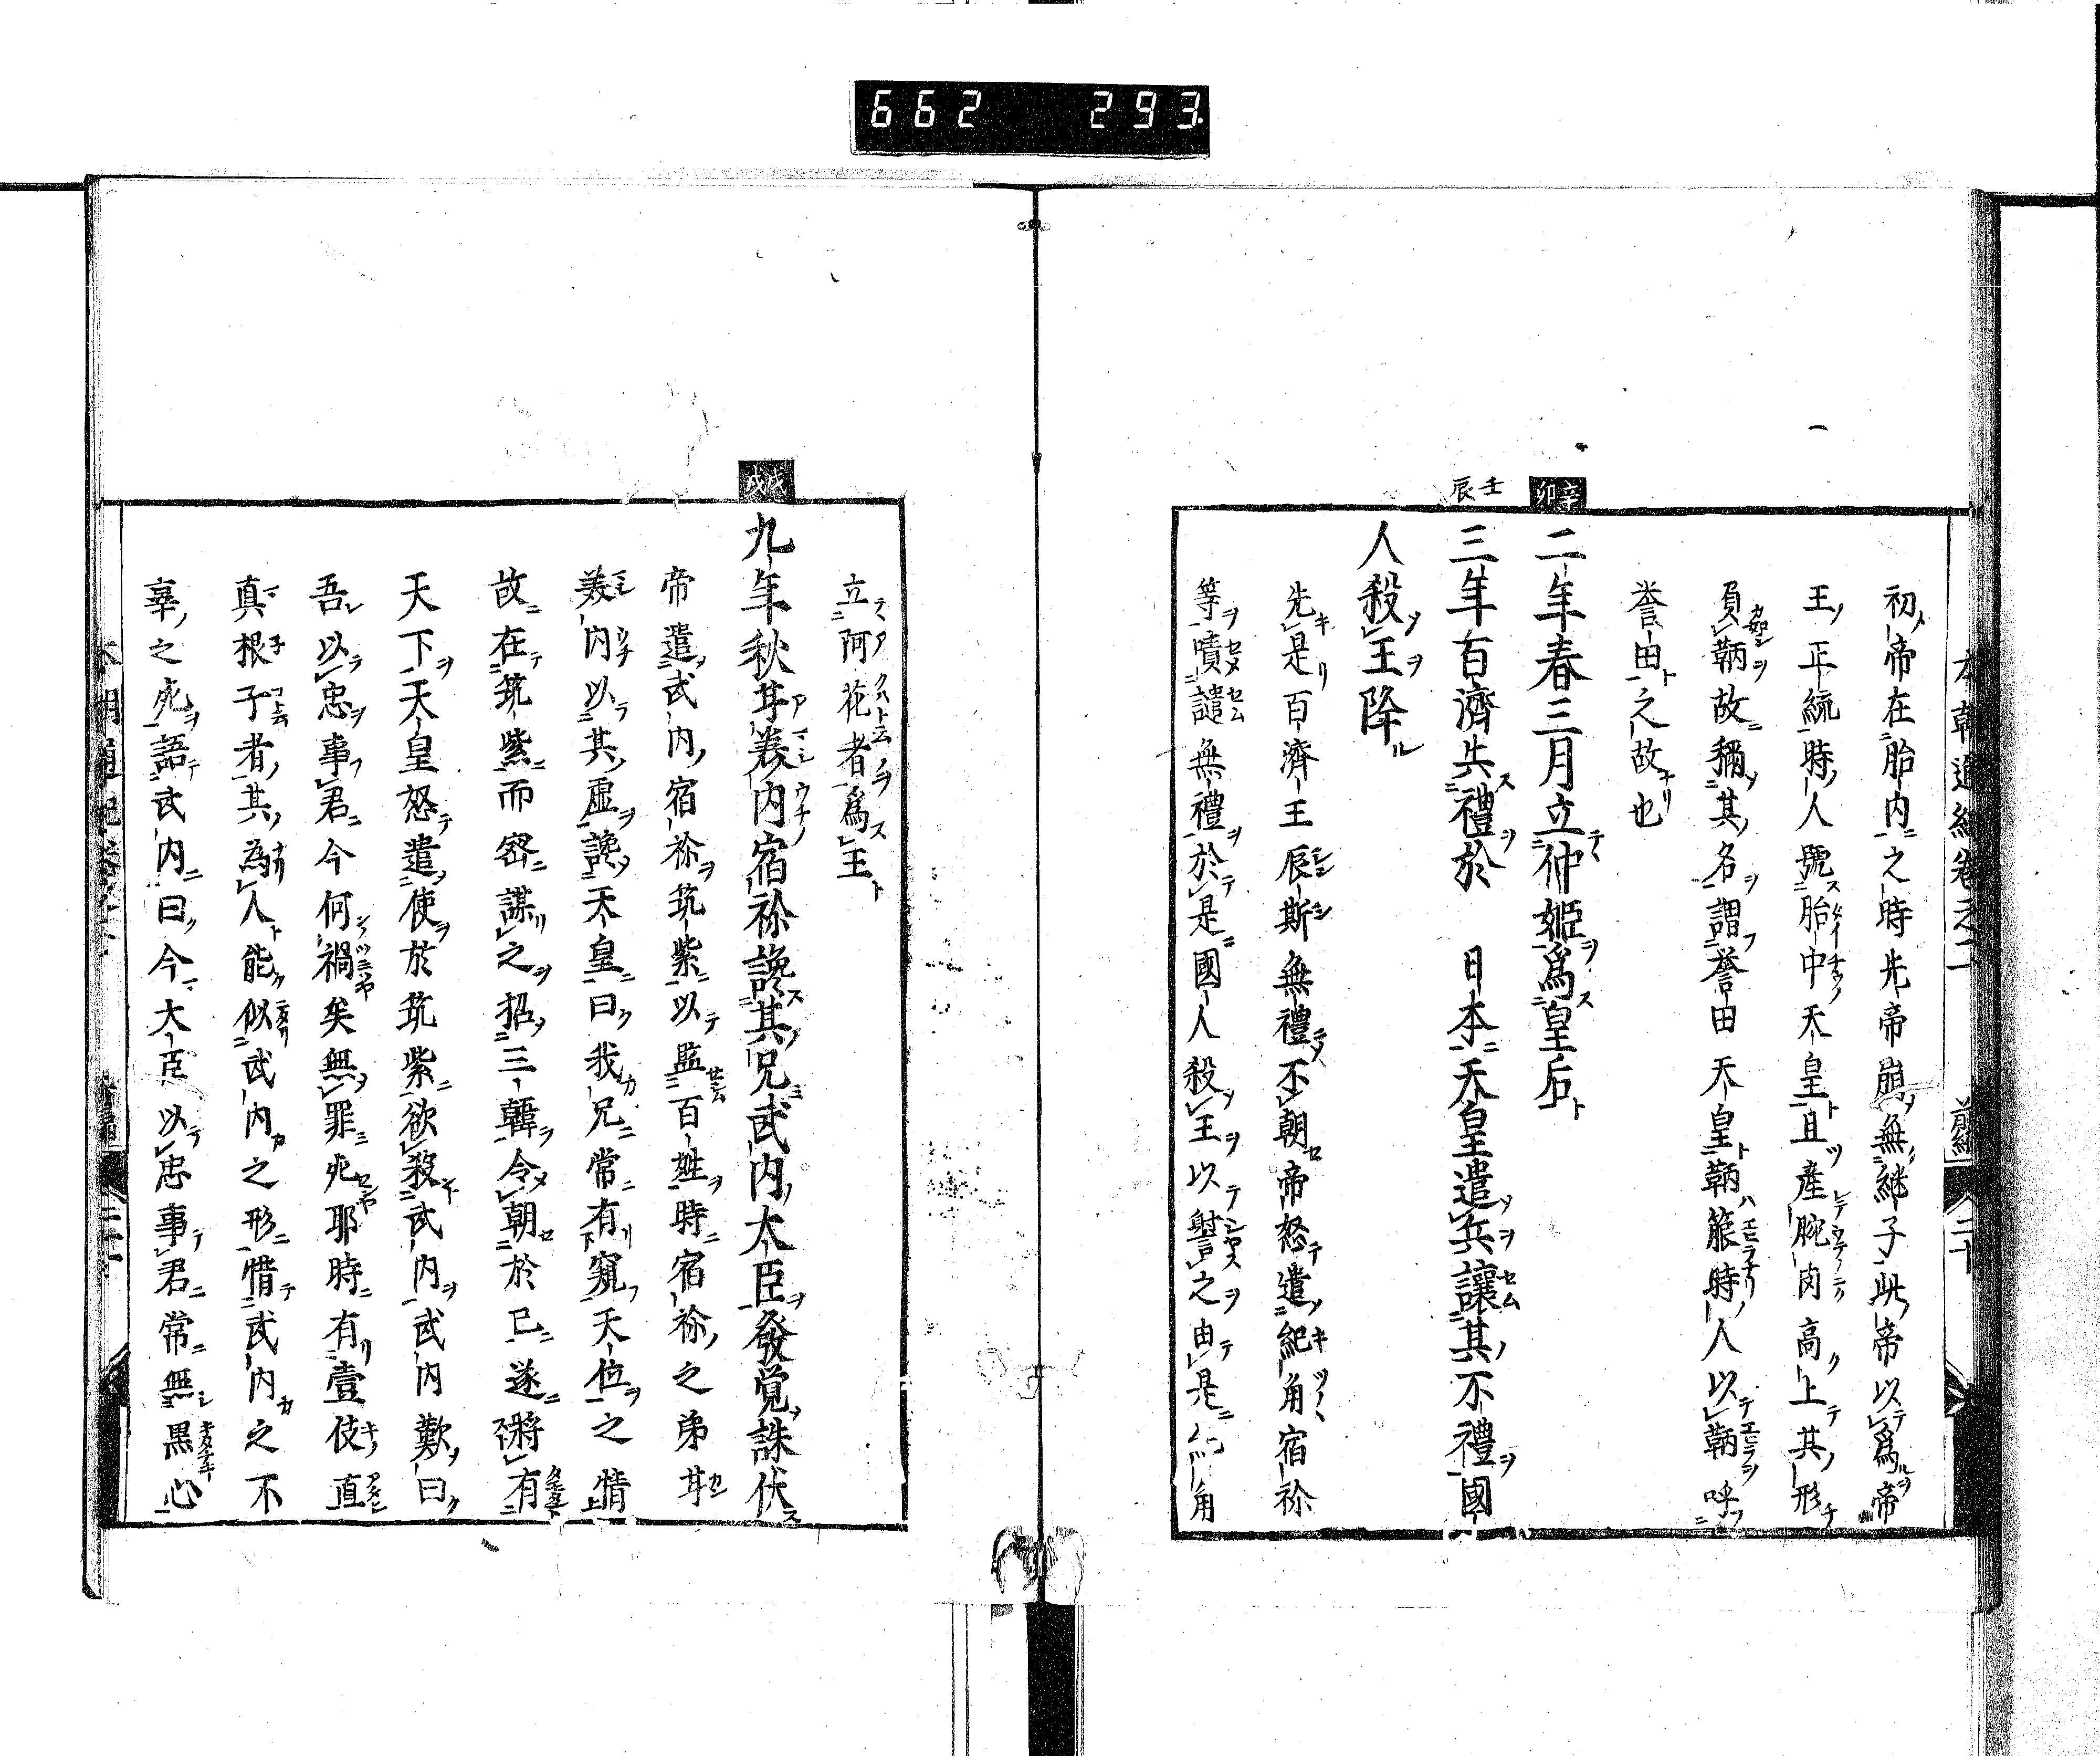 662 293
初帝在胎内之時先帝崩無継子此帝以爲帝
王正統時人號胎中天皇且產腕肉高上其形
負鞆故稱其名謂誉田天皇鞆箙時人以鞆呼
誉田之故也
辛卯
二年春三月立仲姫爲皇后
壬辰
三年百濟失禮於 日本天皇遣兵讓其不禮國
人殺王降
先是百濟王辰斯無禮不朝帝怒遣紀角宿祢
等嘖譴無禮於是國人殺王以謝之由是紀角
立阿花者爲王
戊戌
九年秋甘美内宿祢讒其兄武内大臣發覚誅伏
帝遣武内宿祢筑紫以監百姓時宿祢之弟甘
美内以其虚讒天皇曰我兄常有窺天位之情
故在筑紫而密謀之招三韓令朝於已遂将有
天下天皇怒遣使於筑紫欲殺武内武内歎曰
吾以忠事君今何禍矣無罪死耶時有壹伎直
真根子者其為人能似武内之形惜武内之不
辜之死語武内曰今大臣以忠事君常無黒心